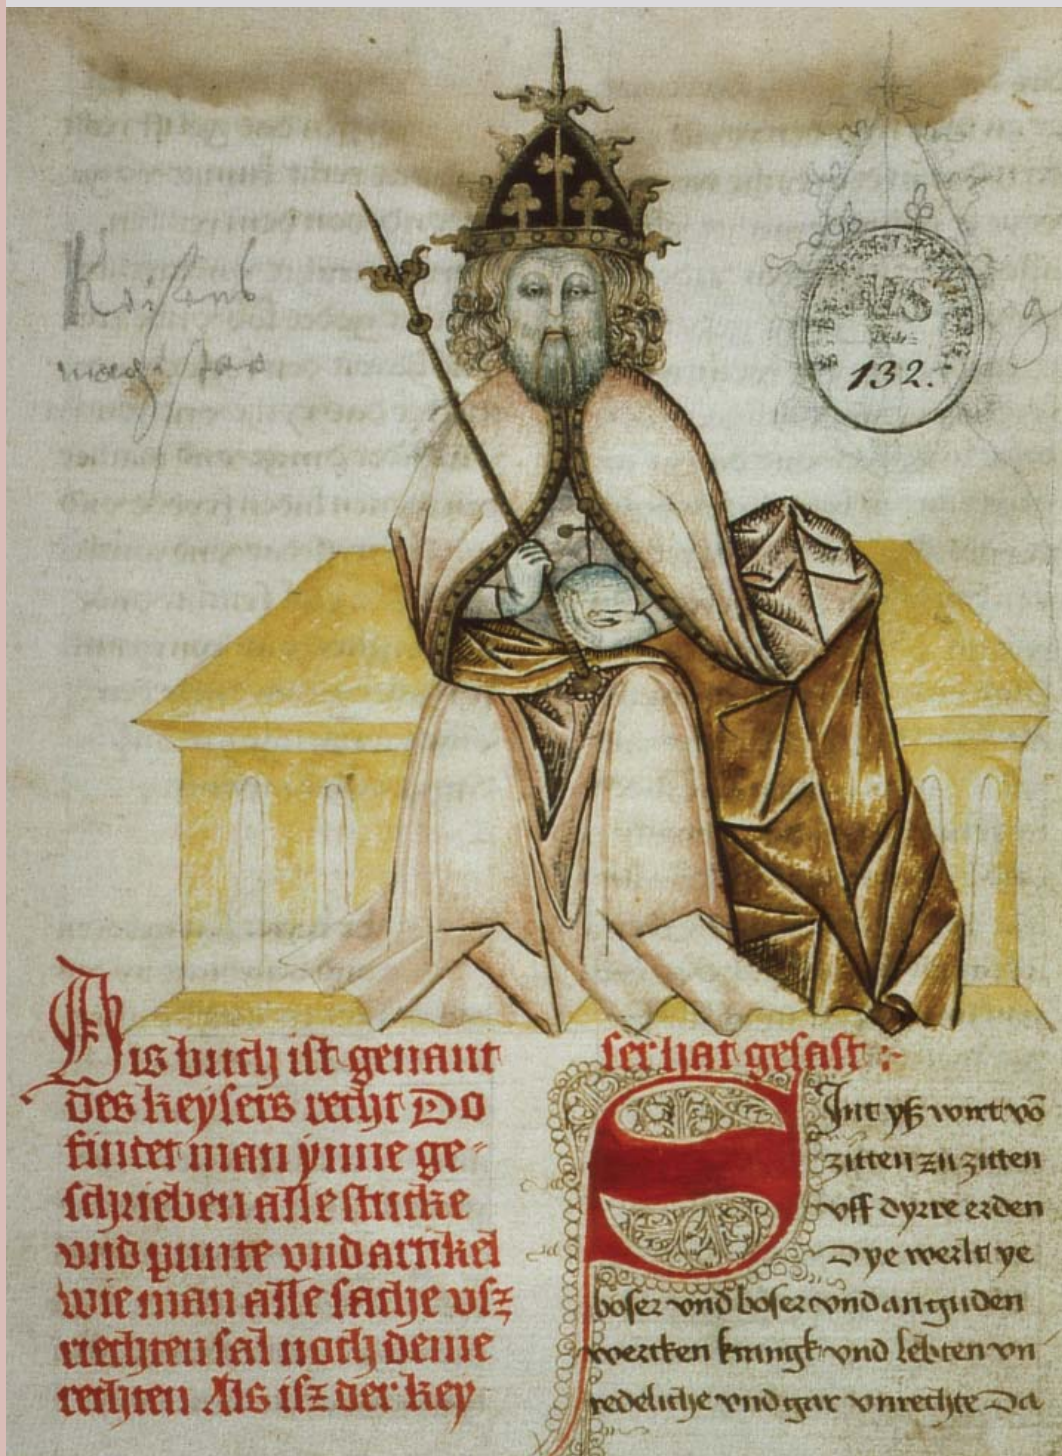 132.
Dis buch ist genant
des keysers recht Do
findet man ynne ge-
schrieben alle stucke
vnd punte vnd artikel
wie man alle sache vsz
riechten sal noch deme
rechten Als isz der key
ser hat gesast :-
Sint yß wirt vō
zitten zu zitten
vff dyrre erden
Dye werlt ye
boser vnd boser vnd an guden
wercken krangk vnd lebten vn
redeliche vnd gar vnrechte Da